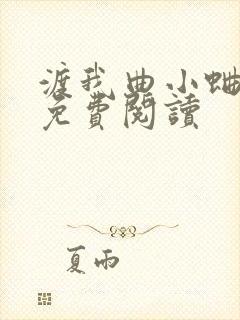 渡我曲小蛐
免費閱讀
夏雨